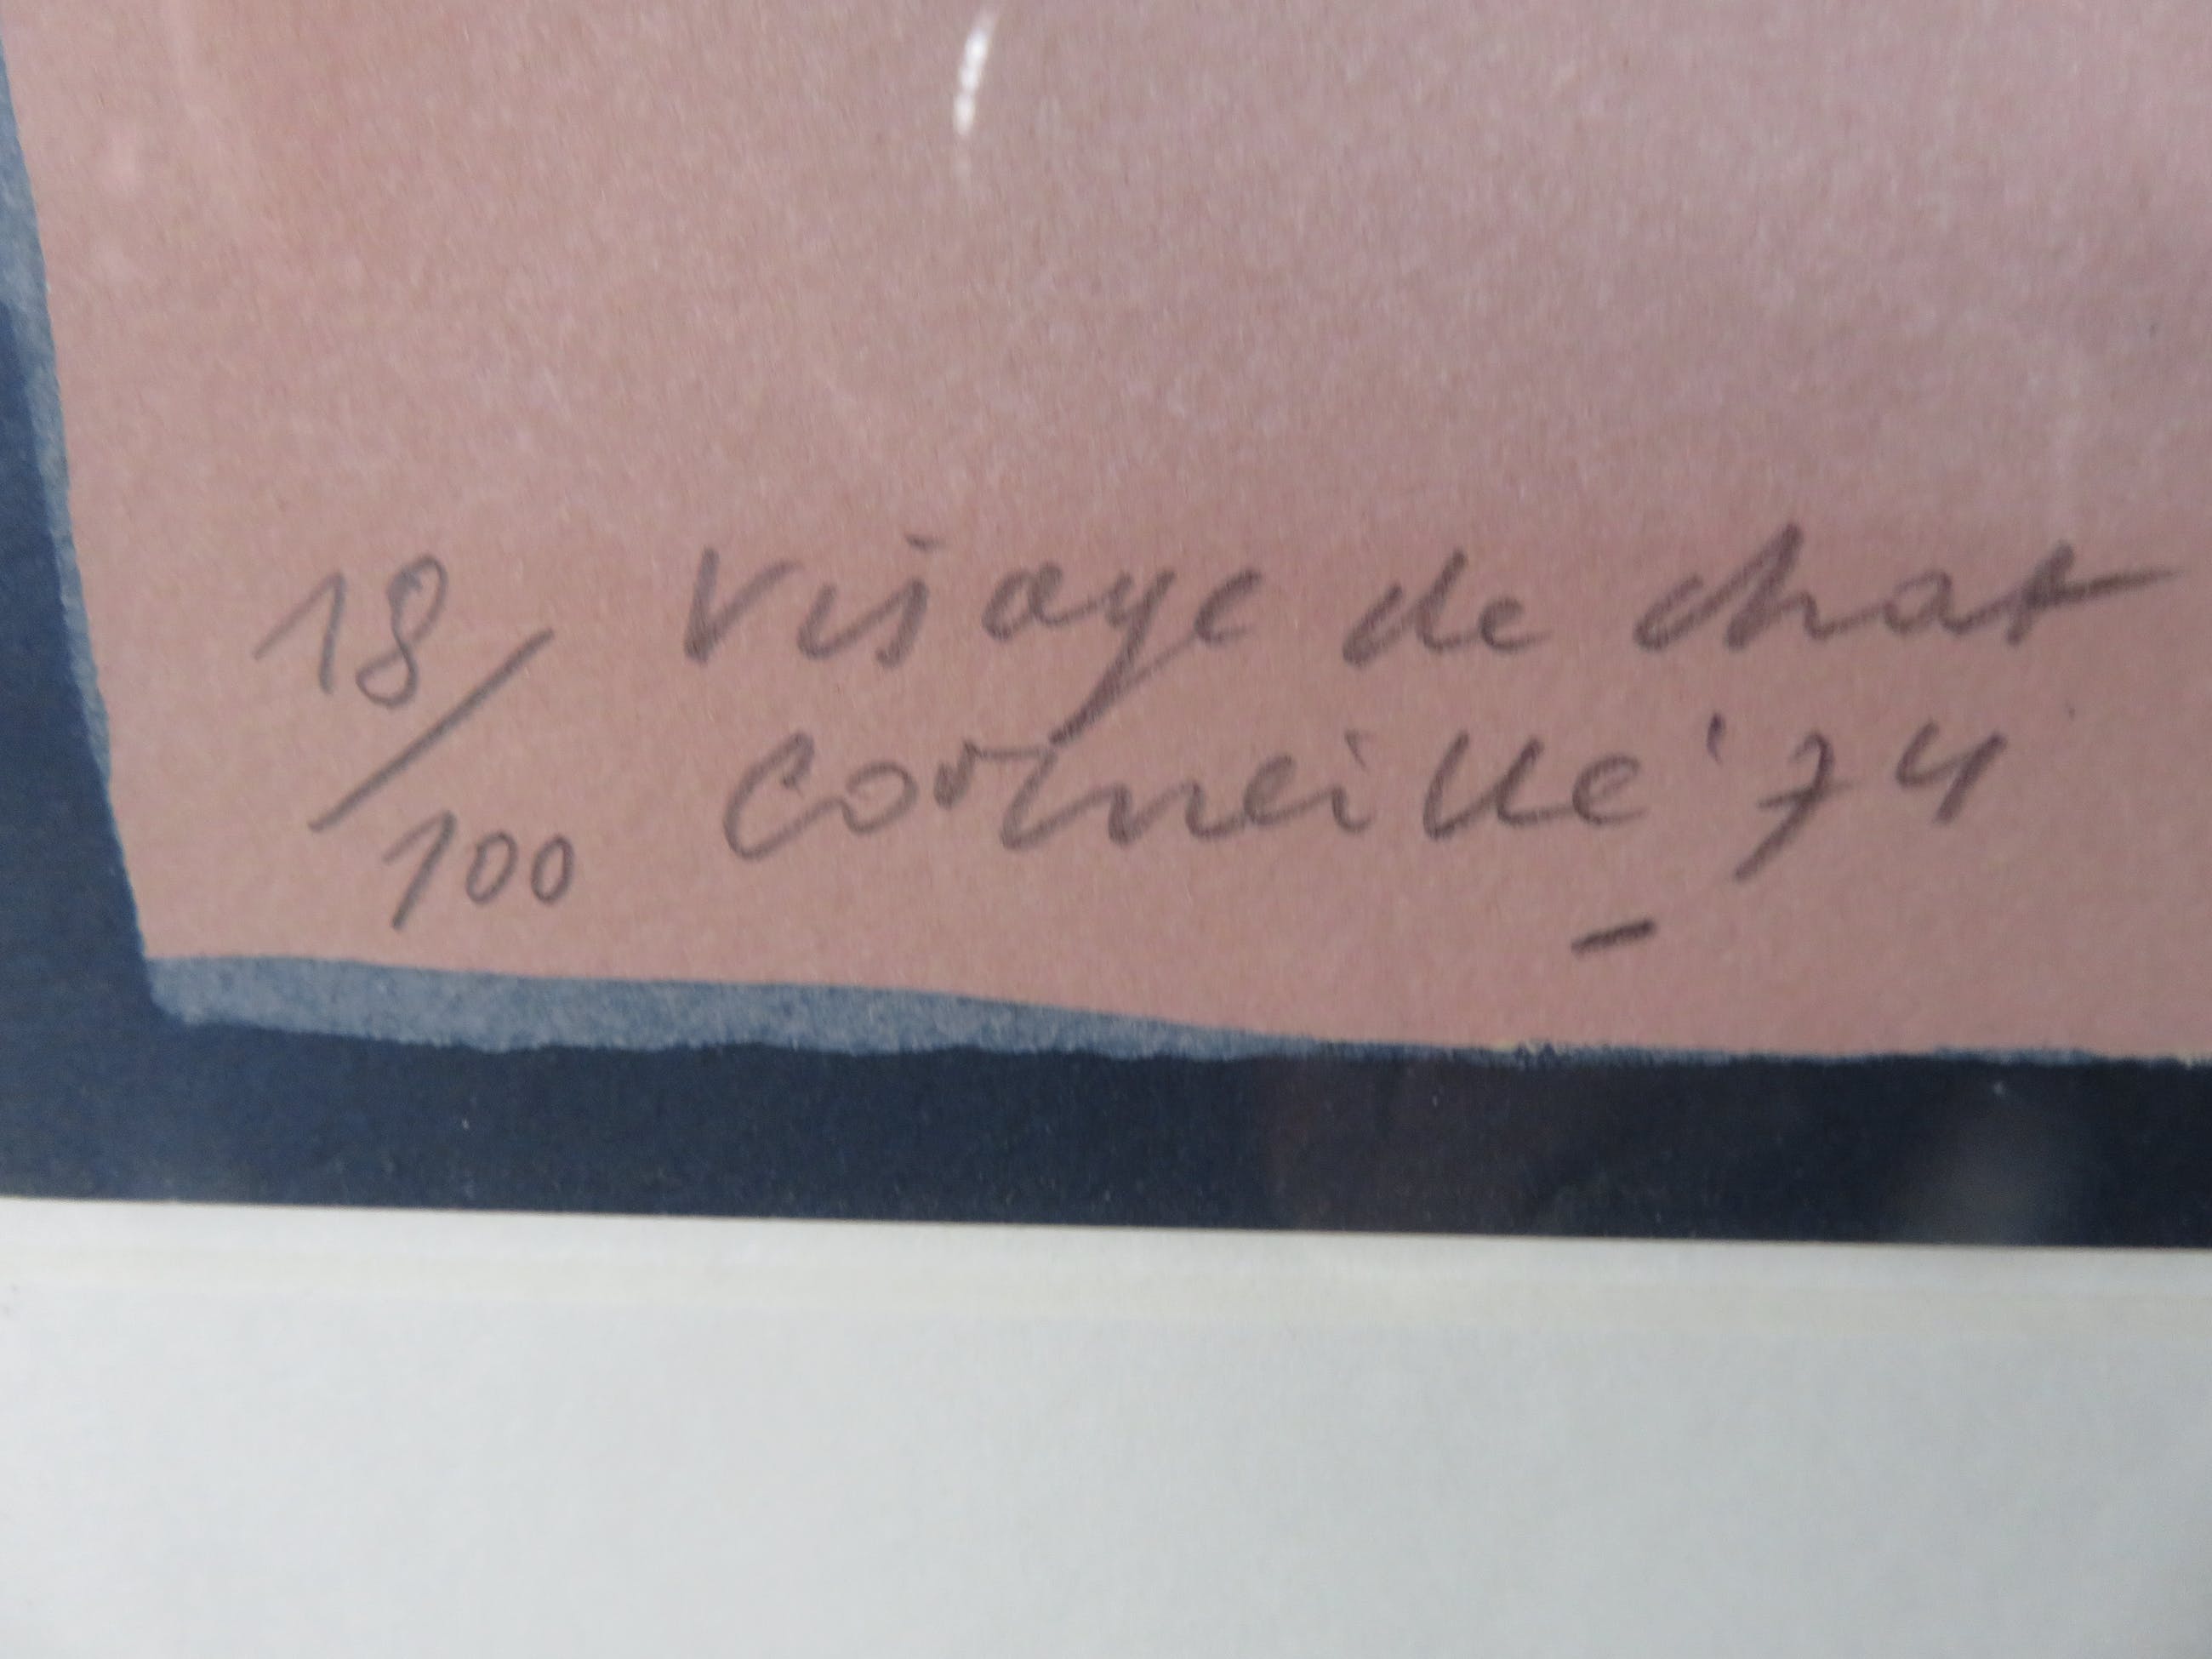 18/100 visage de chat
Corneille '74